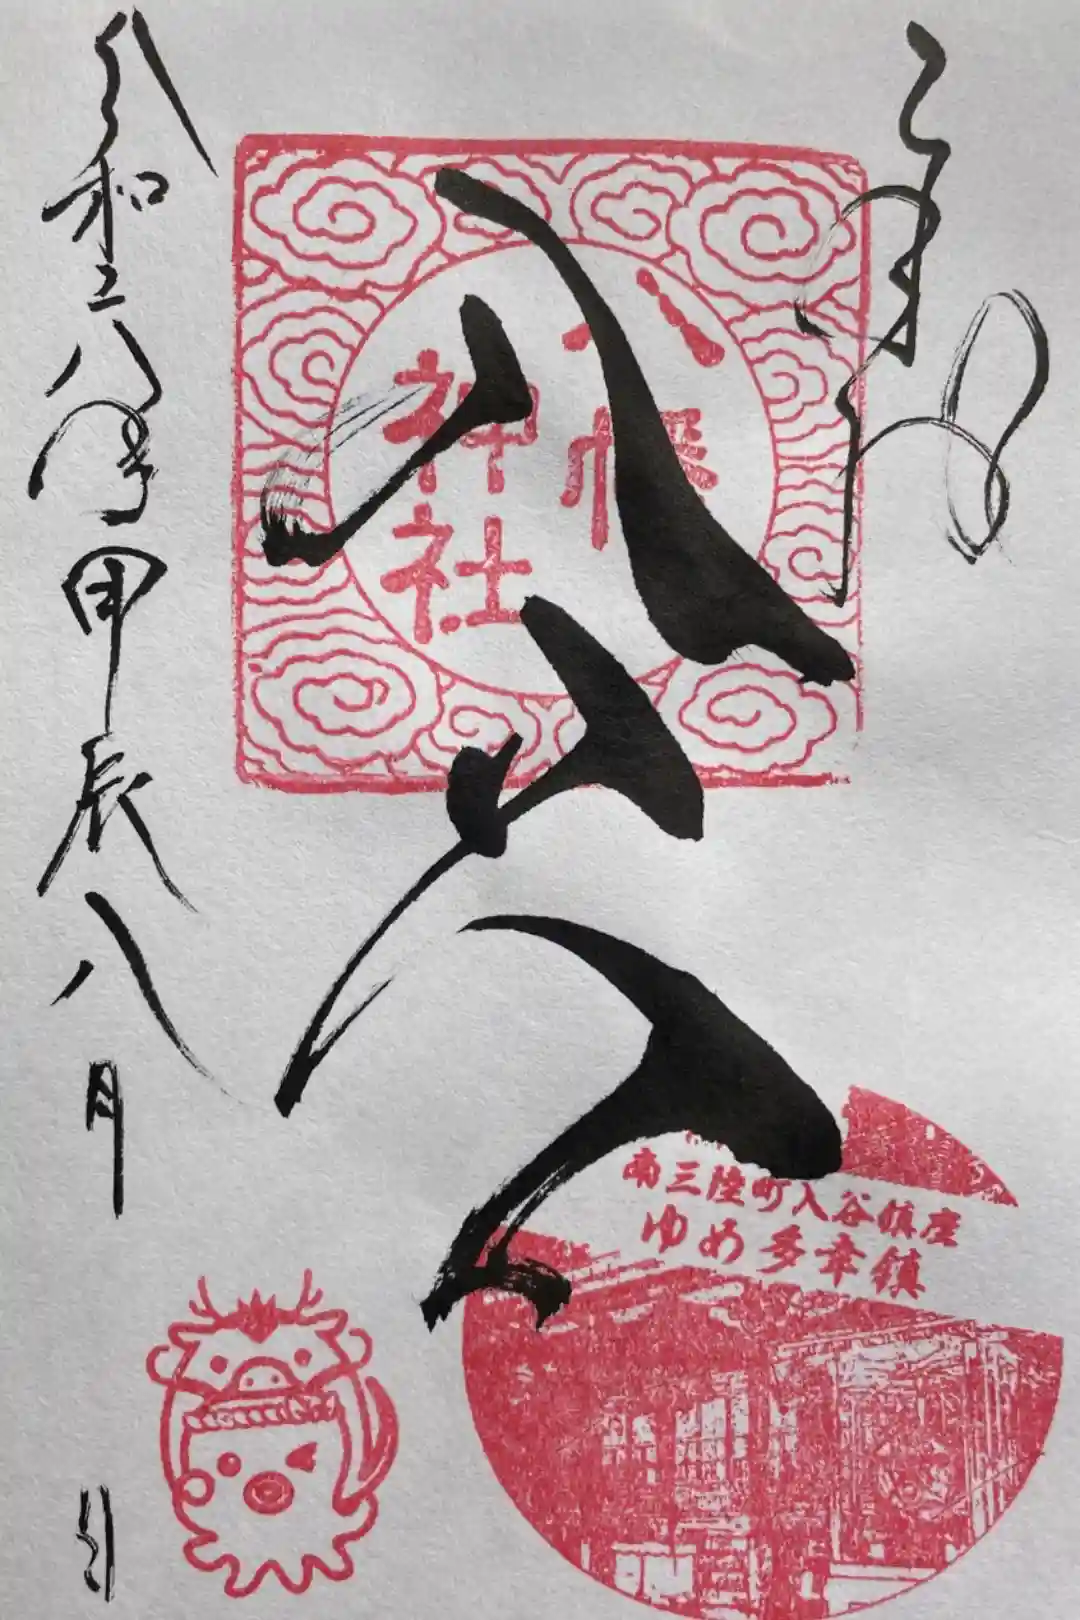 奉拝
八幡
神社
令和六年甲辰八月 日
南三陸町入谷鎮座
ゆめ多幸鎮